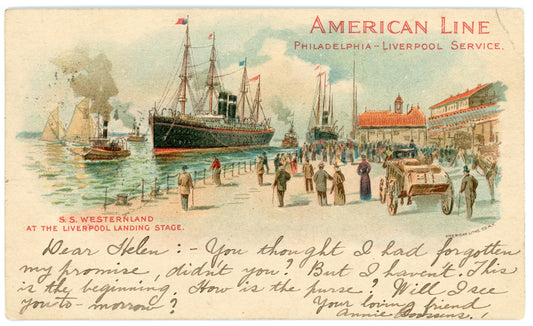 AMERICAN LINE
PHILADELPHIA - LIVERPOOL SERVICE.
S.S. WESTERNLAND
AT THE LIVERPOOL LANDING STAGE.
AMERICAN LITHO. CO. N.Y.
Dear Helen :- You thought I had forgotten
my promise, didn't you? But I haven't. This
is the beginning. How is the purse? Will I see
you to-morrow?
Your loving friend
Annie